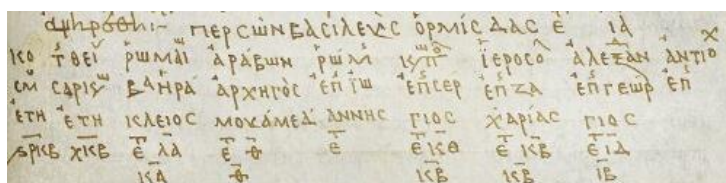 ἀψηρόθη:- περσῶν βασιλεὺς ὁρμίσδας ε̅ ια̅
κο τ θεί ῥωμαί ἀράβων ῥώμ κπ ἱεροσο ἀλεξαν ἀντιο χ
σμ σαρκω βα ἡρά ἀρχηγὸς ἐπ ιω ἐπ σερ ἐπ ζα ἐπ γεωρ ἐπ
ἔτη ἔτη κλειος μουάμεδ άννης γιος χαρίας γιος
ϛρκβ χκβ ε̅ λα ε̅ θ̅ ε̅ ε̅ κθ ε̅ κβ ε̅ ιδ
κα̅ θ̅ κβ̅ κβ̅ ιβ̅